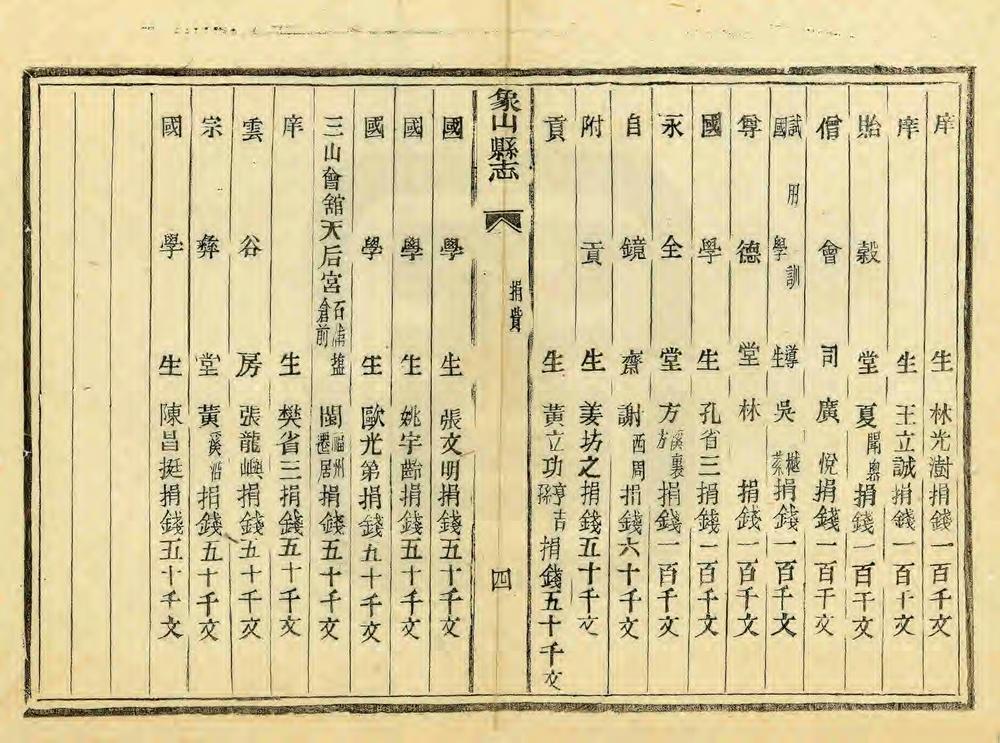 庠生林光澍捐錢一百千文
庠生王立誠捐錢一百千文
貽穀堂夏聞奥捐錢一百千文
僧會司廣悅捐錢一百千文
試用訓導國學生吳樾蓀捐錢一百千文
尊德堂林捐錢一百千文
國學生孔省三捐錢一百千文
永全堂方溪裏方捐錢一百千文
自鏡齋謝西周捐錢六十千文
附貢生姜坊之捐錢五十千文
貢生黃立功孫亨吉捐錢五十千文
象山縣志 捐貲 四
國學生張文明捐錢五十千文
國學生姚宇齡捐錢五十千文
國學生歐光第捐錢五十千文
三山會舘天后宮石浦倉前閩福州遷居捐錢五十千文
庠生樊省三捐錢五十千文
雲谷房張龍嶼捐錢五十千文
宗彝堂黃溪沿捐錢五十千文
國學生陳昌挺捐錢五十千文